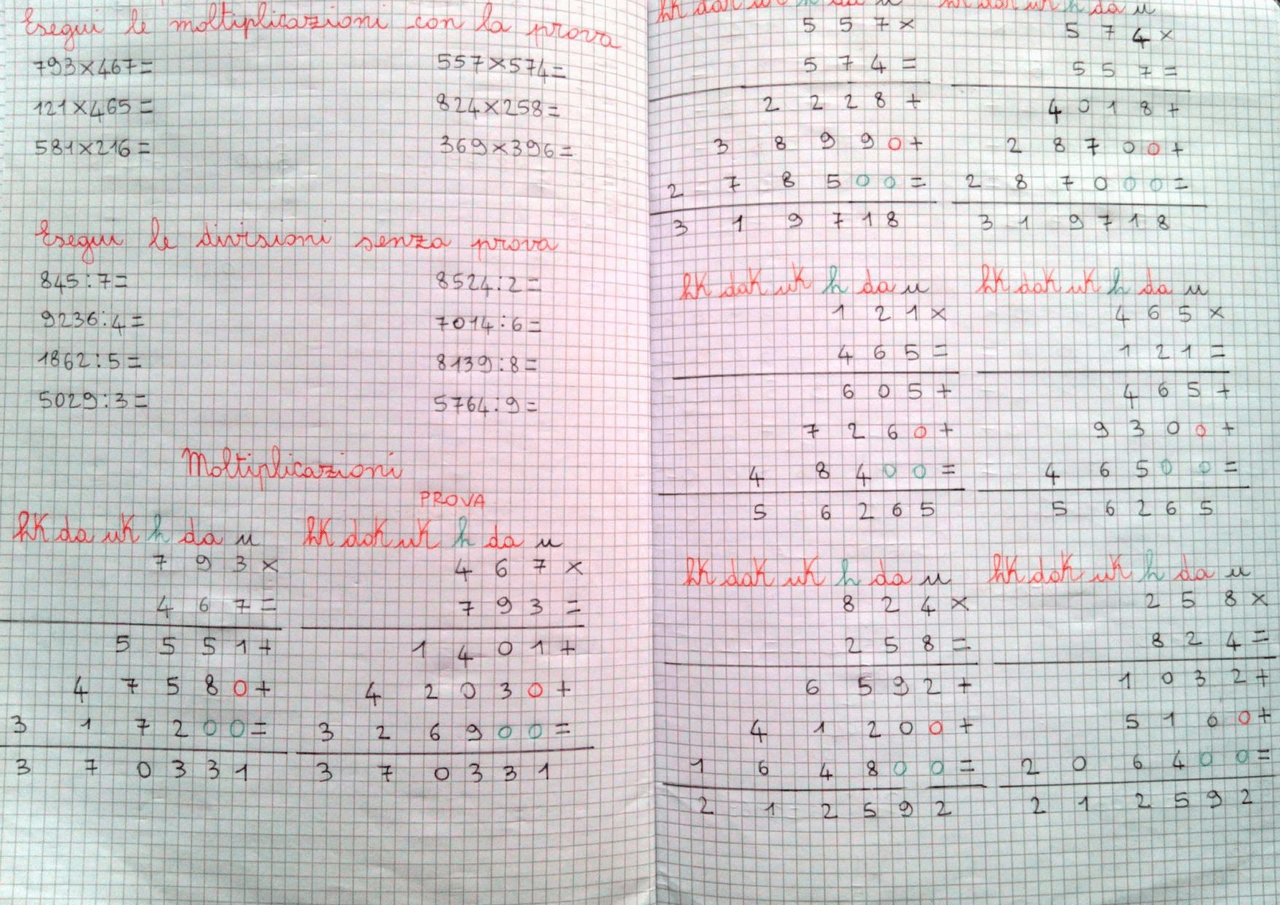 Esegui le moltiplicazioni con la prova
793×467= 557×574=
121×465= 824×258=
581×216= 369×396=
Esegui le divisioni senza prova
845:7= 8524:2=
9236:4= 7014:6=
1862:5= 8139:8=
5029:3= 5764:9=
Moltiplicazioni
PROVA
hK da uK h da u hK daK uK h da u
7 9 3 × 4 6 7 ×
4 6 7 = 7 9 3 =
5 5 5 1 + 1 4 0 1 +
4 7 5 8 0 + 4 2 0 3 0 +
3 1 7 2 0 0 = 3 2 6 9 0 0 =
3 7 0 3 3 1 3 7 0 3 3 1
hK daK uK h da u hK daK uK h da u
5 5 7 × 5 7 4 ×
5 7 4 = 5 5 7 =
2 2 2 8 + 4 0 1 8 +
3 8 9 9 0 + 2 8 7 0 0 +
2 7 8 5 0 0 = 2 8 7 0 0 0 =
3 1 9 7 1 8 3 1 9 7 1 8
hK daK uK h da u hK daK uK h da u
1 2 1 × 4 6 5 ×
4 6 5 = 1 2 1 =
6 0 5 + 4 6 5 +
7 2 6 0 + 9 3 0 0 +
4 8 4 0 0 = 4 6 5 0 0 =
5 6 2 6 5 5 6 2 6 5
hK daK uK h da u hK daK uK h da u
8 2 4 × 2 5 8 ×
2 5 8 = 8 2 4 =
6 5 9 2 + 1 0 3 2 +
4 1 2 0 0 + 5 1 6 0 +
1 6 4 8 0 0 = 2 0 6 4 0 0 =
2 1 2 5 9 2 2 1 2 5 9 2